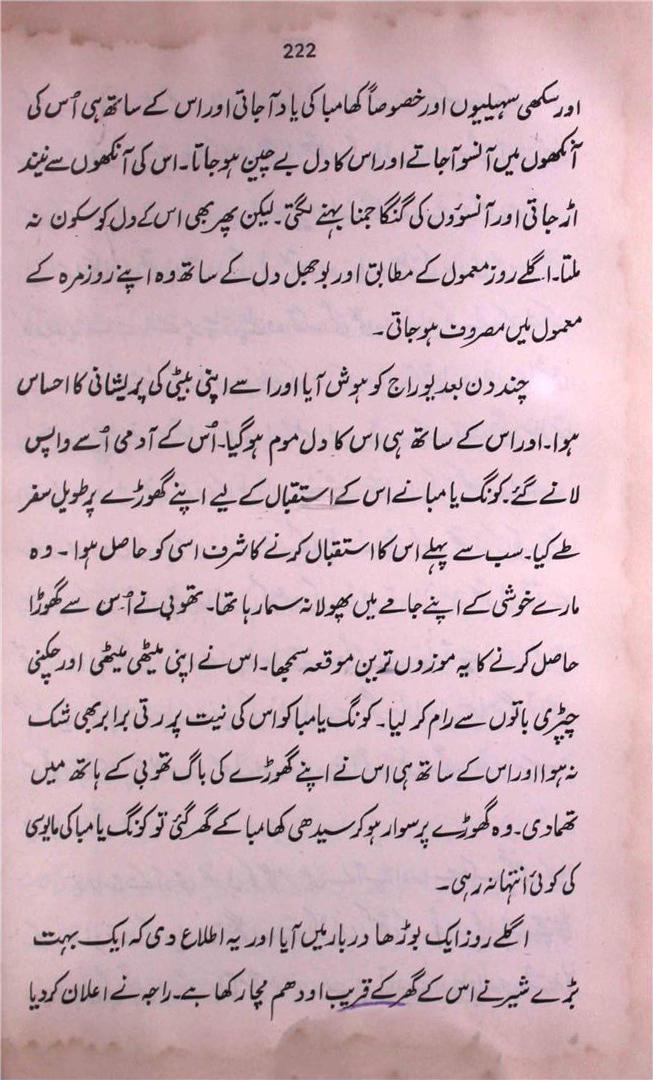 222
اور سکھی سہیلیوں اور خصوصاً کھامبا کی یاد آجاتی اور اس کے ساتھ ہی اُس کی
آنکھوں میں آنسو آجاتے اور اس کا دل بے چین ہوجاتا۔ اس کی آنکھوں سے نیند
اڑ جاتی اور آنسوؤں کی گنگا جمنا بہنے لگتی۔ لیکن پھر بھی اس کے دل کو سکون نہ
ملتا۔ اگلے روز معمول کے مطابق اور بوجھل دل کے ساتھ وہ اپنے روز مرہ کے
معمول میں مصروف ہوجاتی۔
چند دن بعد یوراج کو ہوش آیا اور اسے اپنی بیٹی کی پریشانی کا احساس
ہوا۔ اور اس کے ساتھ ہی اس کا دل موم ہوگیا۔ اُس کے آدمی اُسے واپس
لانے گئے۔ کونگ یامبا نے اس کے استقبال کے لیے اپنے گھوڑے پر طویل سفر
طے کیا۔ سب سے پہلے اس کا استقبال کرنے کا شرف اسی کو حاصل ہوا۔ وہ
مارے خوشی کے اپنے جامے میں پھولا نہ سمار ہا تھا۔ تھوبی نے اُس سے گھوڑا
حاصل کرنے کا یہ موزوں ترین موقعہ سمجھا۔ اس نے اپنی میٹھی میٹھی اور چکنی
چپڑی باتوں سے رام کر لیا۔ کونگ یامبا کو اس کی نیت پر رتی برابر بھی شک
نہ ہوا اور اس کے ساتھ ہی اس نے اپنے گھوڑے کی باگ تھوبی کے ہاتھ میں
تھمادی۔ وہ گھوڑے پر سوار ہوکر سیدھی کھامبا کے گھر گئی تو کونگ یامبا کی مایوسی
کی کوئی انتہا نہ رہی۔
اگلے روز ایک بوڑھا دربار میں آیا اور یہ اطلاع دی کہ ایک بہت
بڑے شیر نے اس کے گھر کے قریب اودھم مچا رکھا ہے۔ راجہ نے اعلان کردیا